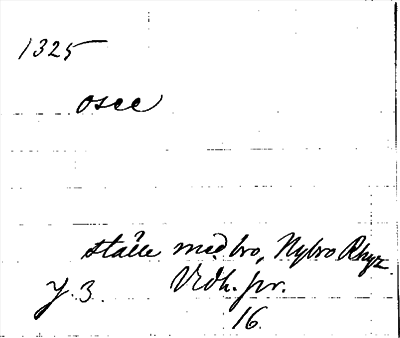 1325
osee
ställe med bro, Nybro Rhyz
J. 3. Vidh. pr.
16.